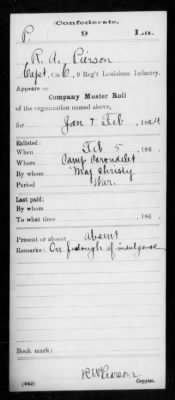 Confederate.
P. 9 La.
R. A. Pierson
Capt, Co. C, 9 Reg't Louisiana Infantry.
Appears on
Company Muster Roll
of the organization named above,
for Jan & Feb, 1864
Enlisted:
When Feb 5, 186 .
Where Camp Carondelet
By whom Maj Christy
Period War.
Last paid:
By whom
To what time , 186 .
Present or absent Absent
Remarks: On furlough of indulgence
Book mark:
(642) Copyist.